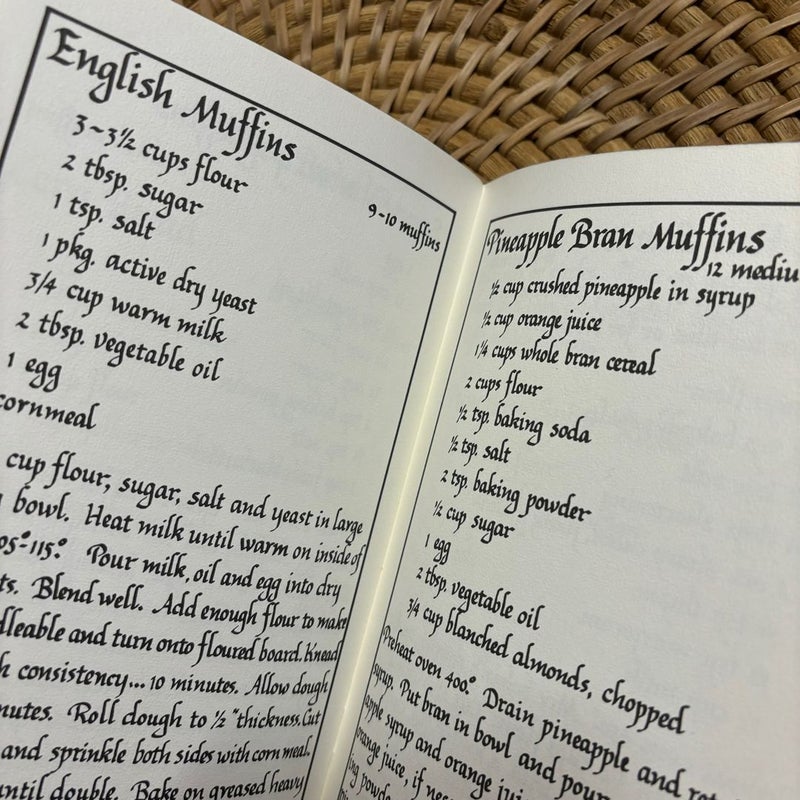 English Muffins
9~10 muffins
3~3½ cups flour
2 tbsp. sugar
1 tsp. salt
1 pkg. active dry yeast
3/4 cup warm milk
2 tbsp. vegetable oil
1 egg
cornmeal
cup flour, sugar, salt and yeast in large
bowl. Heat milk until warm on inside of
05°-115°. Pour milk, oil and egg into dry
ts. Blend well. Add enough flour to make
lleable and turn onto floured board. Knead
h consistency... 10 minutes. Allow dough
nutes. Roll dough to ½" thickness. Cut
and sprinkle both sides with corn meal.
until double. Bake on greased heavy
Pineapple Bran Muffins
12 mediu
½ cup crushed pineapple in syrup
½ cup orange juice
1¼ cups whole bran cereal
2 cups flour
½ tsp. baking soda
½ tsp. salt
2 tsp. baking powder
½ cup sugar
1 egg
2 tbsp. vegetable oil
3/4 cup blanched almonds, chopped
Preheat oven 400°. Drain pineapple and
syrup. Put bran in bowl and pour
apple syrup and orange jui
orange juice, if nec
ing powd